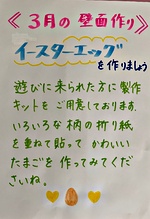 《３月の 壁面作り》
イースターエッグ
を作りましょう
遊びに来られた方に製作
キットを ご用意しております。
いろいろな 柄の折り紙
を重ねて貼って かわいい
たまごを 作ってみてくだ
さいね。